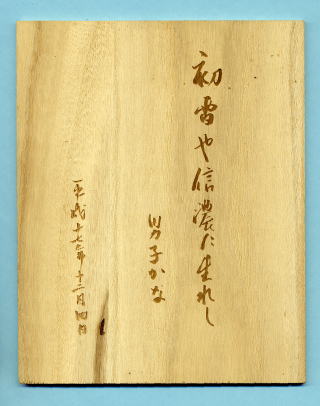 初雪や信濃に生れし
男子かな
平成十七年十二月四日